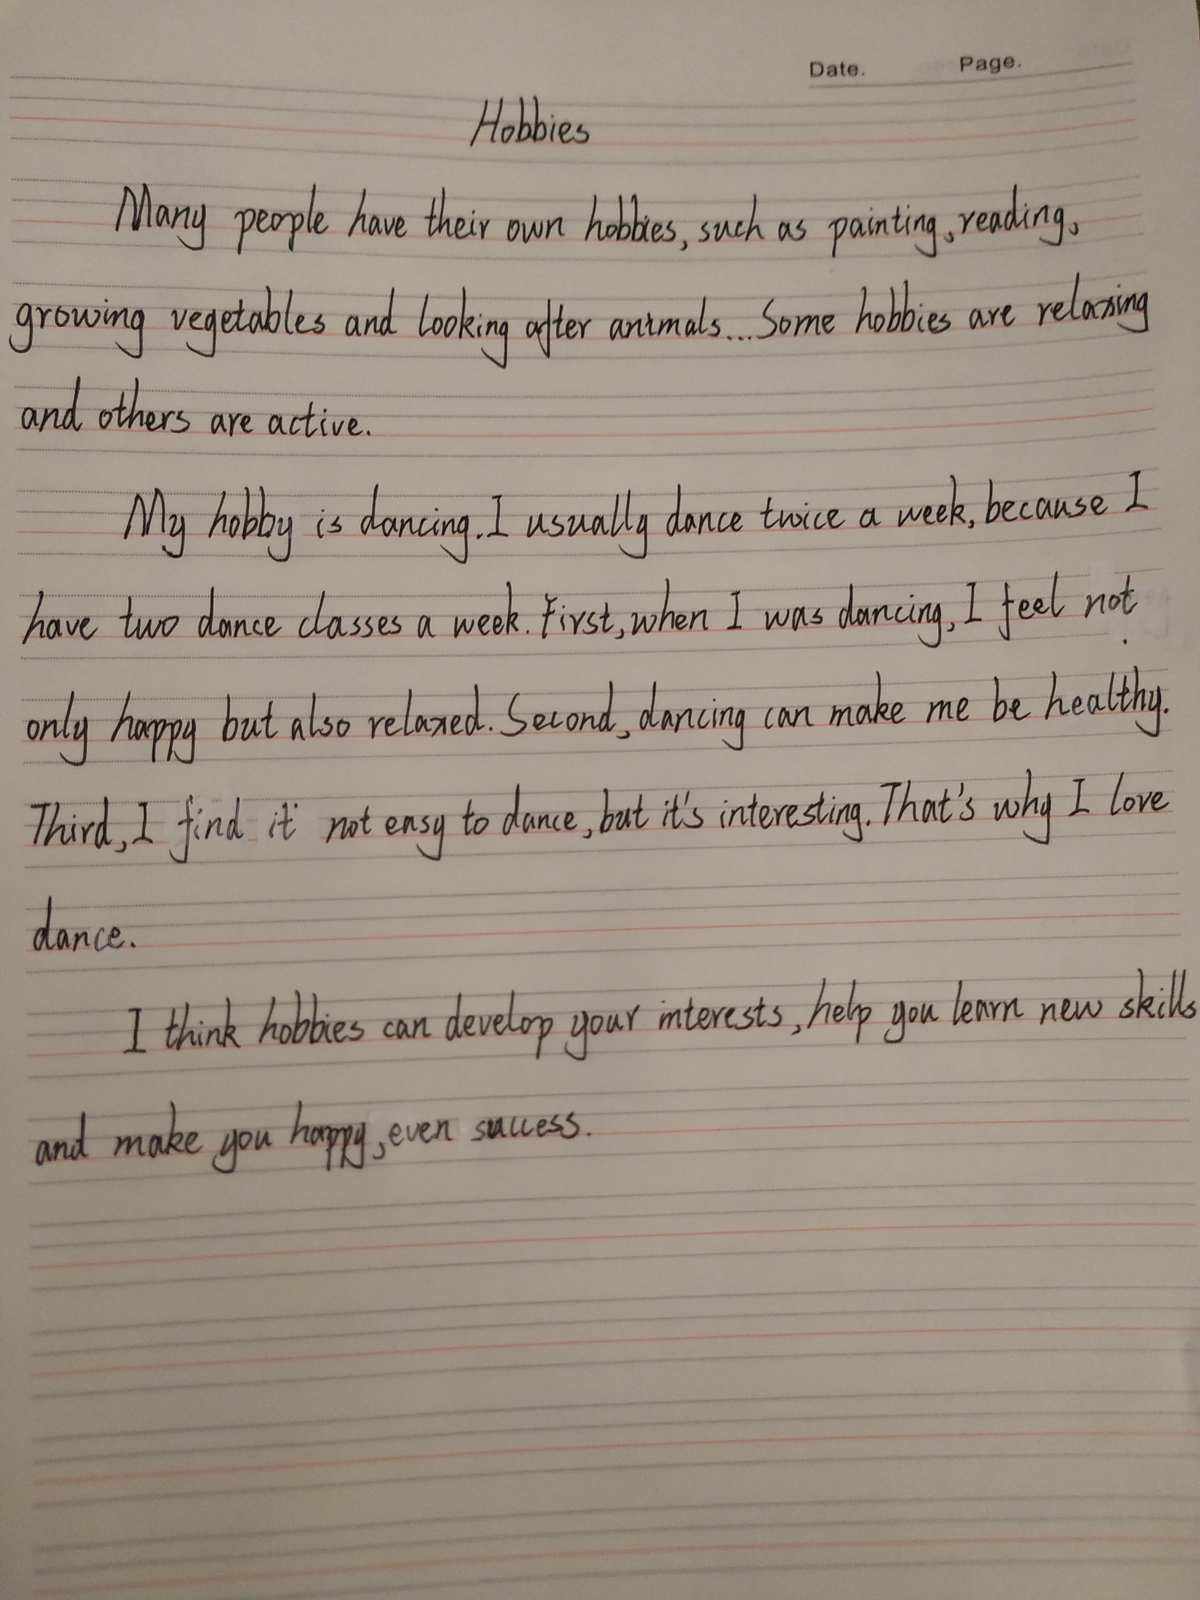 Date. Page.
Hobbies
Many people have their own hobbies, such as painting, reading,
growing vegetables and looking after animals... Some hobbies are relaxing
and others are active.
My hobby is dancing. I usually dance twice a week, because I
have two dance classes a week. First, when I was dancing, I feel not
only happy but also relaxed. Second, dancing can make me be healthy.
Third, I find it not easy to dance, but it's interesting. That's why I love
dance.
I think hobbies can develop your interests, help you learn new skills
and make you happy, even success.